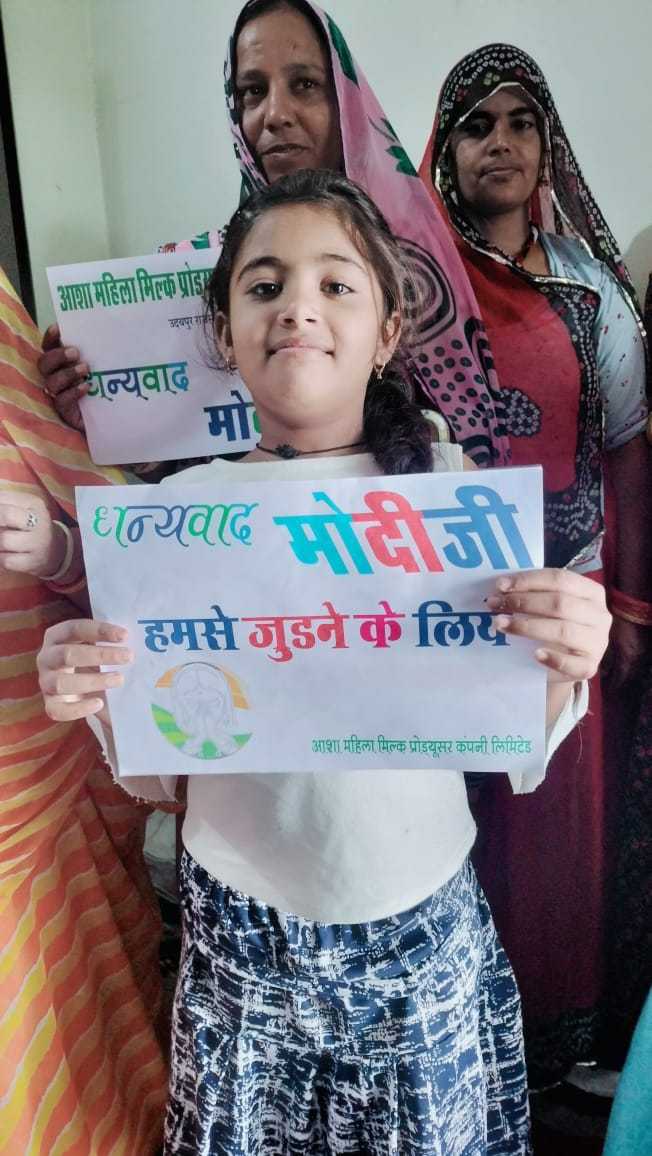 आशा महिला मिल्क
उदयपुर
धन्यवाद
धन्यवाद मोदीजी
हमसे जुडने के लिय
आशा महिला मिल्क प्रोड्यूसर कंपनी लिमिटेड